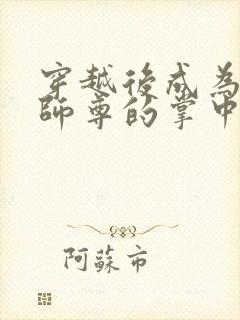 穿越後成為
師尊的掌中
阿蘇市